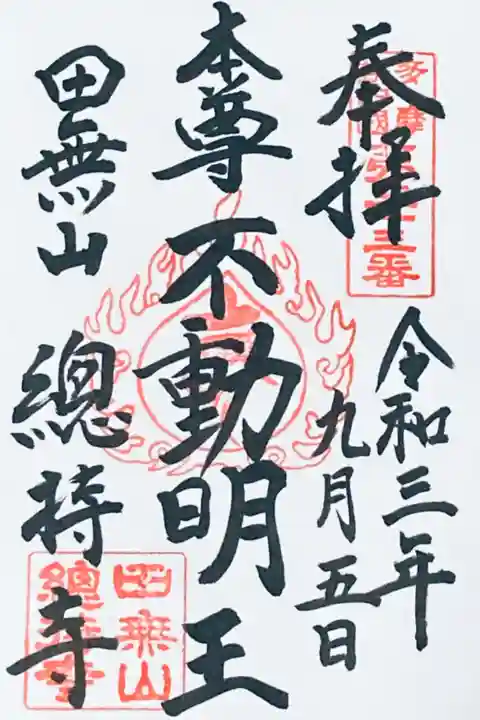 奉拝
令和三年
九月五日
本尊 不動明王
田無山 總持寺
田無山
總持寺